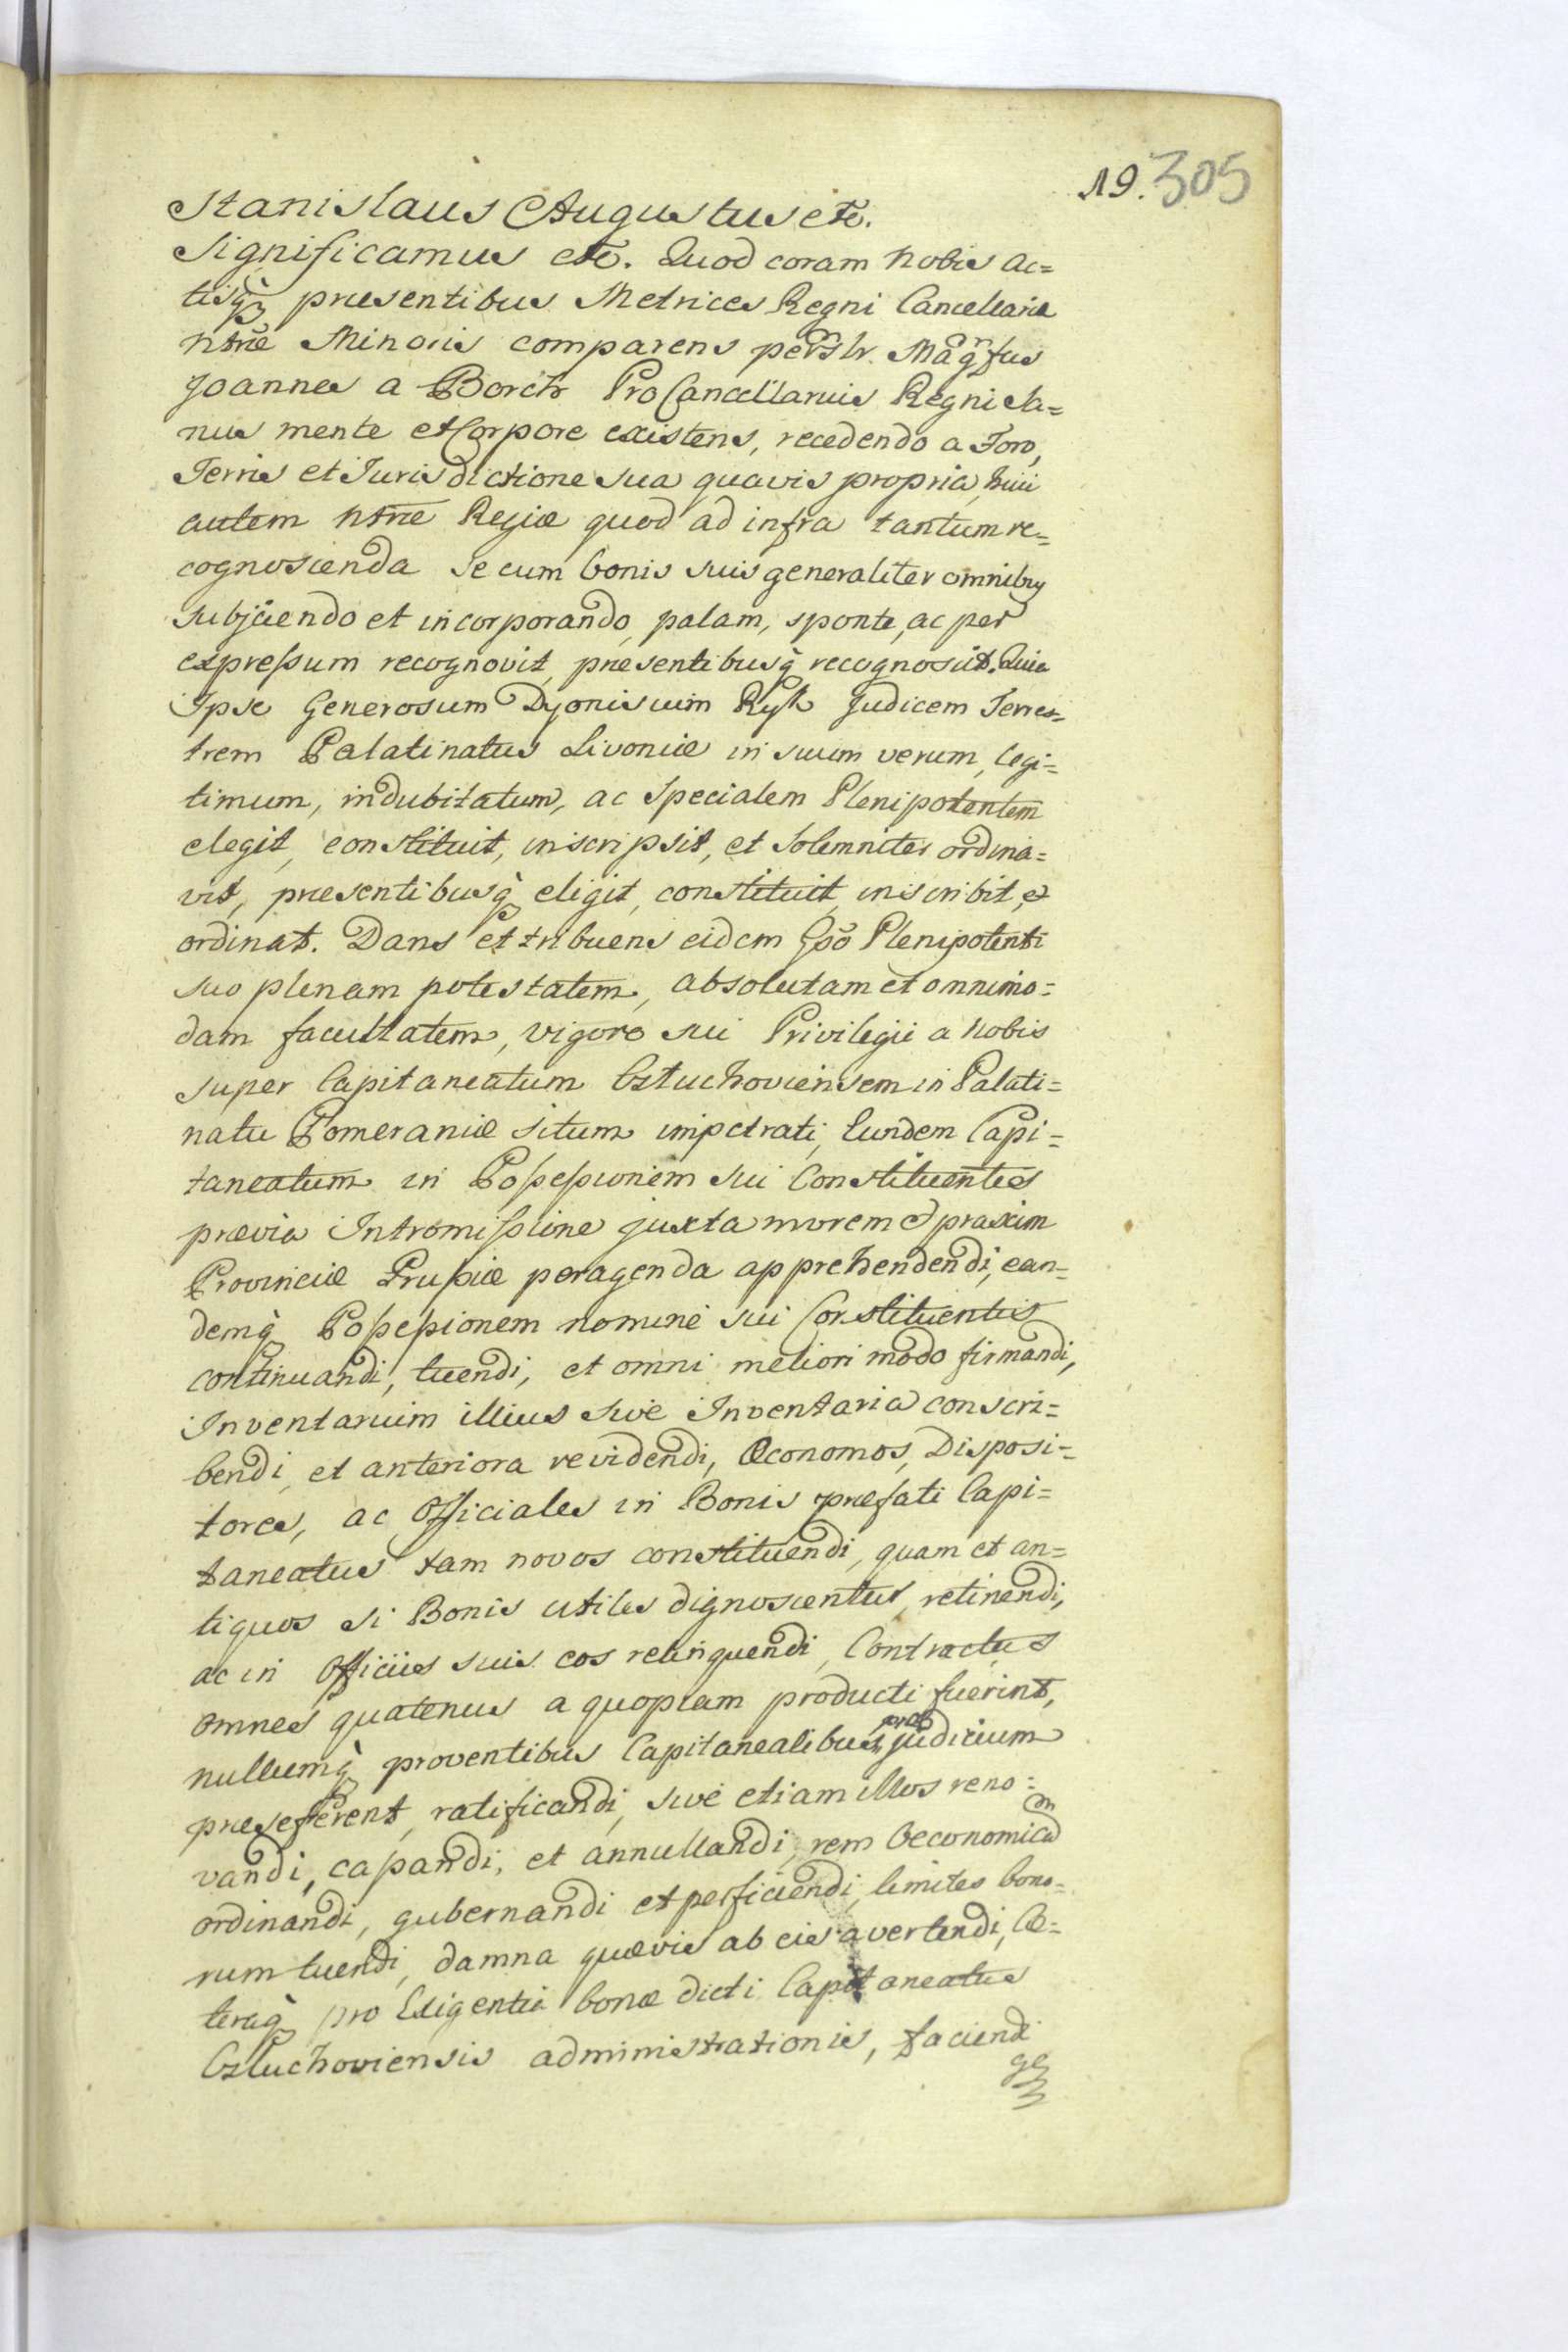 19. 305
Stanislaus Augustus etc.
Significamus etc. Quod coram Nobis Ac=
tisq̀ præsentibus Metrices Regni Cancellariæ
ntræ Minoris comparens persńlr. Magńfus
Joannes a Borch ProCancellarius Regni Sa=
nus mente et Corpore existens, recedendo a Foro,
Terris et Jurisdictione sua quavis propria, huic
autem ntræ Regiæ quod ad infra tantum re=
cognoscenda se cum bonis suis generaliter omnibus
subjiciendo et incorporando, palam, sponte, ac per
expressum recognovit, præsentibusq̀ recognoscit. Quia
Ipse Generosum Dyonisium Ryk Judicem Terres=
trem Palatinatus Livoniæ in suum verum, legi=
timum, indubitatum, ac Specialem Plenipotentem
elegit, constituit, inscripsit, et Solemniter ordina=
vit, præsentibusq̀ eligit, constituit, inscribit, et
ordinat. Dans et tribuens eidem Gsō Plenipotenti
suo plenam potestatem, absolutam et omnimo=
dam facultatem, vigore sui Privilegii a Nobis
super Capitaneatum Cztuchoviensem in Palati=
natu Pomeraniæ situm impetrati, Eundem Capi=
taneatum in Possessionem sui Constituentis
prævia Intromissione juxta morem et praxim
Provinciæ Prussiæ peragenda apprehendendi, ean=
demq̀ Possessionem nomine sui Constituentis
continuandi, tuendi, et omni meliori modo firmandi,
Inventarium illius sive Inventaria conscri=
bendi, et anteriora revidendi, Œconomos, Disposi=
tores, ac Officiales in Bonis præfati Capi=
taneatus tam novos constituendi, quam et an=
tiquos si Bonis utiles dignoscentur, retinendi,
ac in Officiis suis eos relinquendi, Contractus
omnes quatenus a quopiam producti fuerint,
nullumq̀ proventibus Capitanealibus præjudicium
præseferent, ratificandi, sive etiam illos reno=
vandi, cassandi, et annullandi, rem Oeconomicam
ordinandi, gubernandi et perficiendi, limites bono=
rum tuendi, damna quævis ab eis avertendi, Cæ=
teraq̀ pro Exigentia bonæ dicti Capitaneatus
Cztuchoviensis administrationis, faciendi
ge